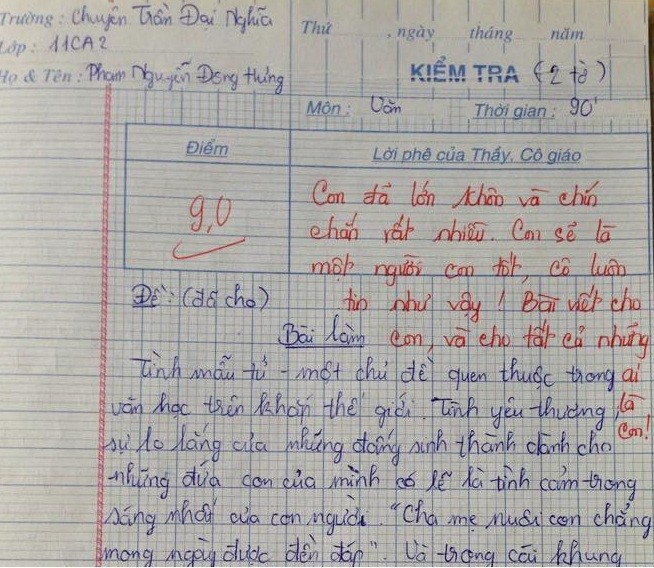 Trường: Chuyên Trần Đại Nghĩa
Thứ , ngày tháng năm
Lớp: 11CA2
KIỂM TRA (2 tờ)
Họ & Tên: Phạm Nguyễn Đông Hưng
Môn: Văn Thời gian: 90'
Điểm
Lời phê của Thầy, Cô giáo
9,0
Con đã lớn khôn và chín
chắn rất nhiều. Con sẽ là
một người con tốt, cô luôn
tin như vậy! Bài viết cho
con, và cho tất cả những
ai
là
con!
Đề: (đã cho)
Bài làm
Tình mẫu tử - một chủ đề quen thuộc trong
văn học trên khắp thế giới. Tình yêu thương,
sự lo lắng của những đấng sinh thành dành cho
những đứa con của mình có lẽ là tình cảm trong
sáng nhất của con người. "Cha mẹ nuôi con chẳng
mong ngày được đền đáp". Và trong cái khung